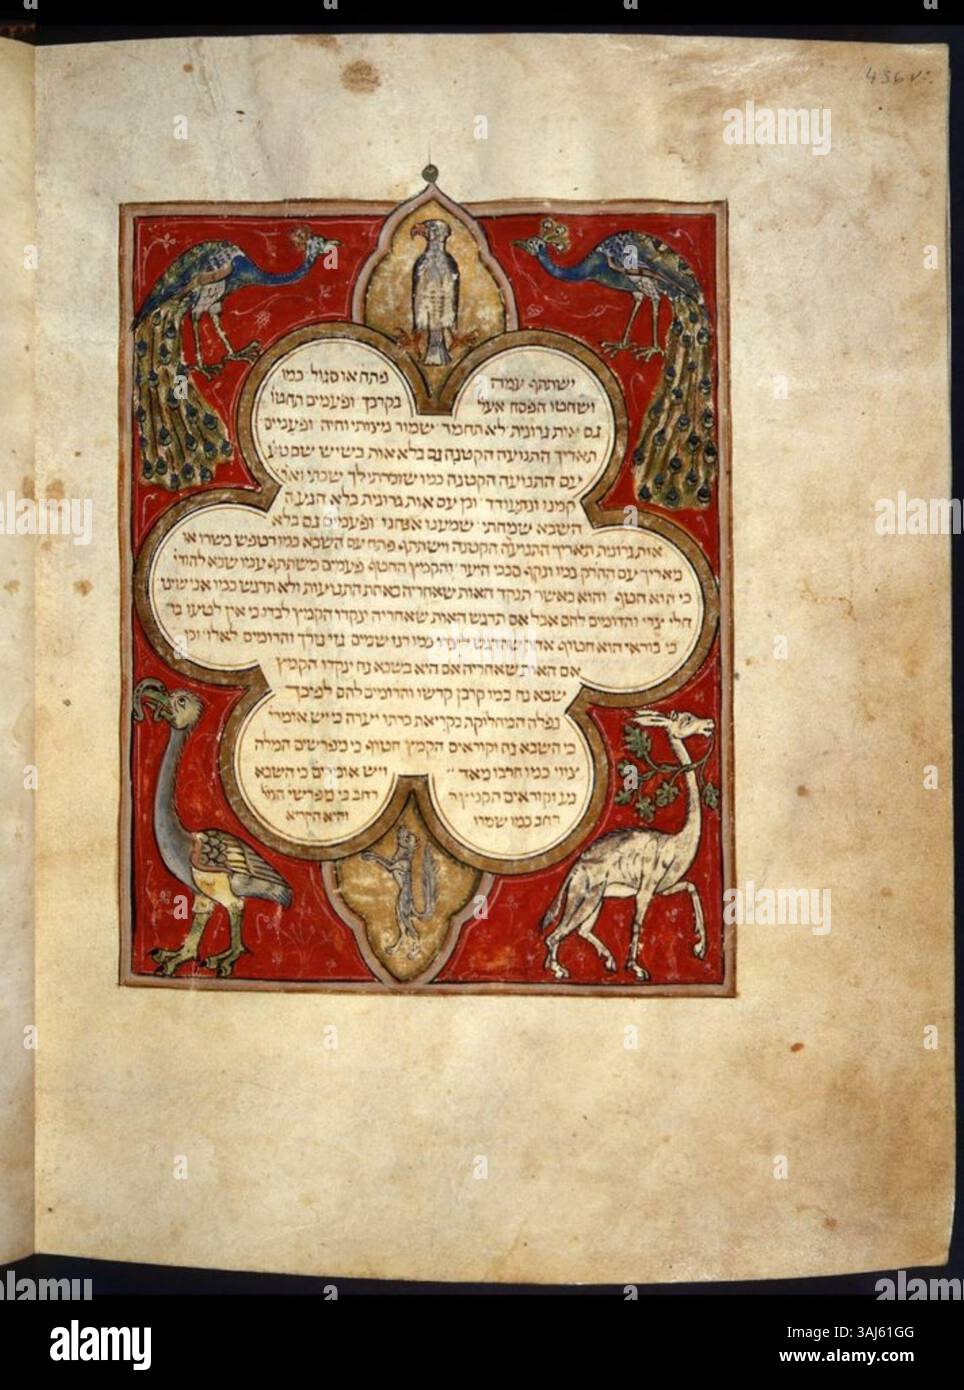 436 v:
ישתתף עמה פתח או סגול כמו
ושחטו הפסח אעל בקרבך ופעמים תחטו
גם אות גרונית לא תחמר שמור מצותי וחיה ופעמים
תאריך התנועה הקטנה גם בלא אות בשיש
עם התנועה הקטנה כמו שזמרתי לך שבתי
קמנו ונתעודד וכן עם אות גרונית בלא הנעה
השבא שמחתי שמענו אנחנו ופעמים גם בלא
אות גרונית תאריך התנועה הקטנה וישתתף פתח עם השבא כמו רטפש בשרו או
מאריך עם החרק כמו ותקף סבכי היער והקמץ החטף פעמים משתתף עמו שבא להודי׳
כי הוא חטף והוא כאשר תנקד האות שאחריה באחת התנועות ולא תדגש כמו אנישיט
חלי צרי והדומים להם אבל אם תדגש האות שאחריה ינקדו הקמץ לבדו כי אין לטעו בו
כי בוראי הוא חטף כמו רנו שמים גזי נזרך והדומים לאלו וכן
אם האות שאחריה אם היא בשבא נח ינקדו הקמץ
שבא נח כמו קרבן קדשו והדומים להם לפיכך
נפלה המחלוקת בקריאת כרתו יערה כי יש אומרי׳
כי השבא נח וקוראים הקמץ חטף כי מפרשים המלה
צווי כמו חרבו מאד ויש אומרים כי השבא
נע וקוראים הקמץ רחב כי מפרשי׳ המל׳
רחב כמו שמרו והיא הקריא
alamy
Image ID: 3AJ61GG
www.alamy.com